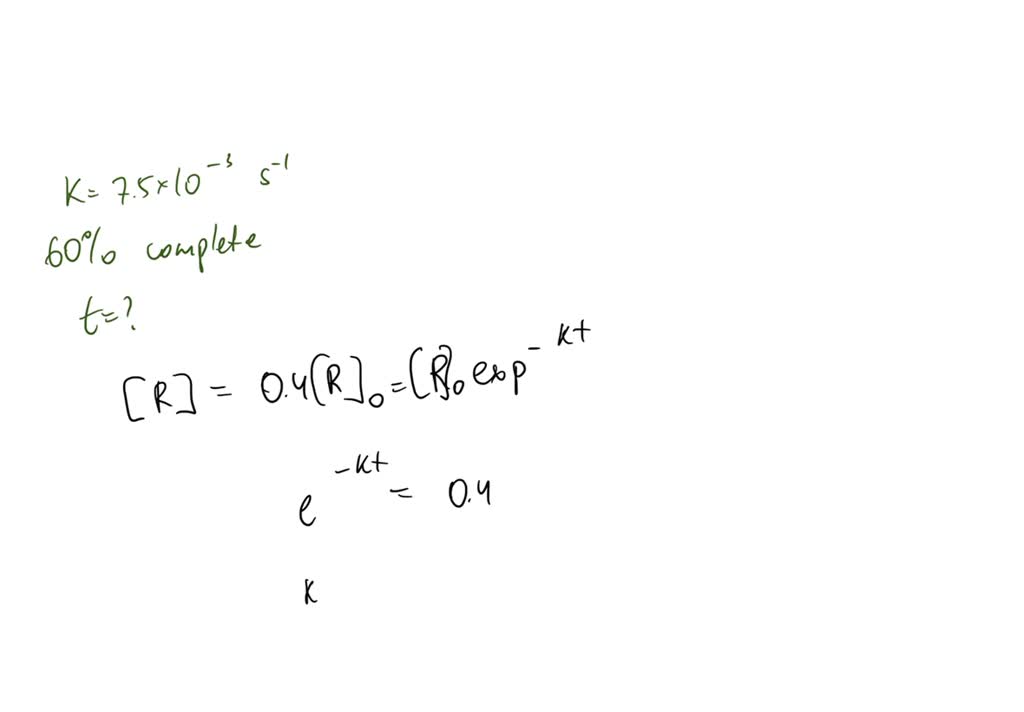 K= 7.5×10⁻³ s⁻¹
60% complete
t=?
[R] = 0.4[R]₀=[R]₀ exp⁻ᴷᵗ
e⁻ᴷᵗ = 0.4
K